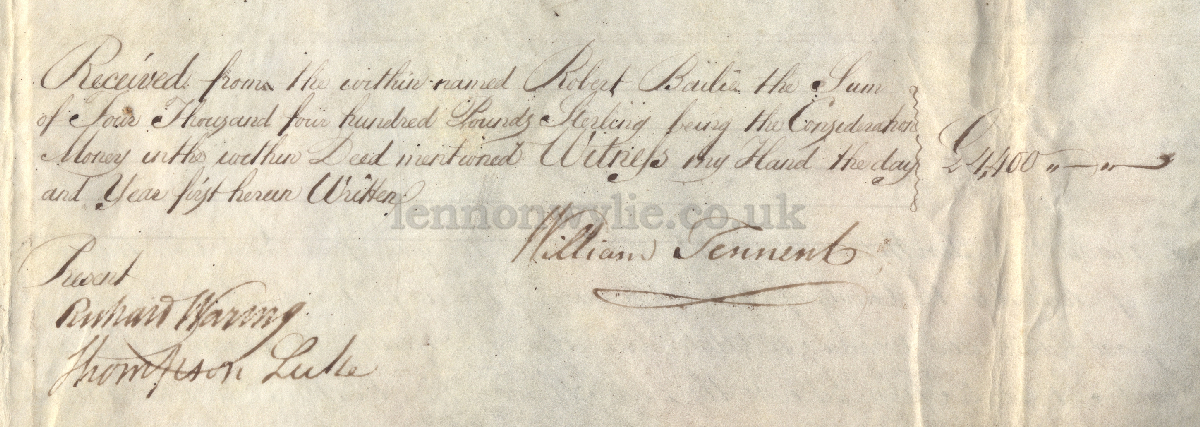 Received from the within named Robert Bailie the Sum
of Four Thousand four hundred Pounds Sterling being the Consideration
Money in the within Deed mentioned Witneſs my Hand the day
and Year first herein Written
£4,400 " — " —
lennonwylie.co.uk
William Tennent
Present
Richard Waring
Thompson Luke